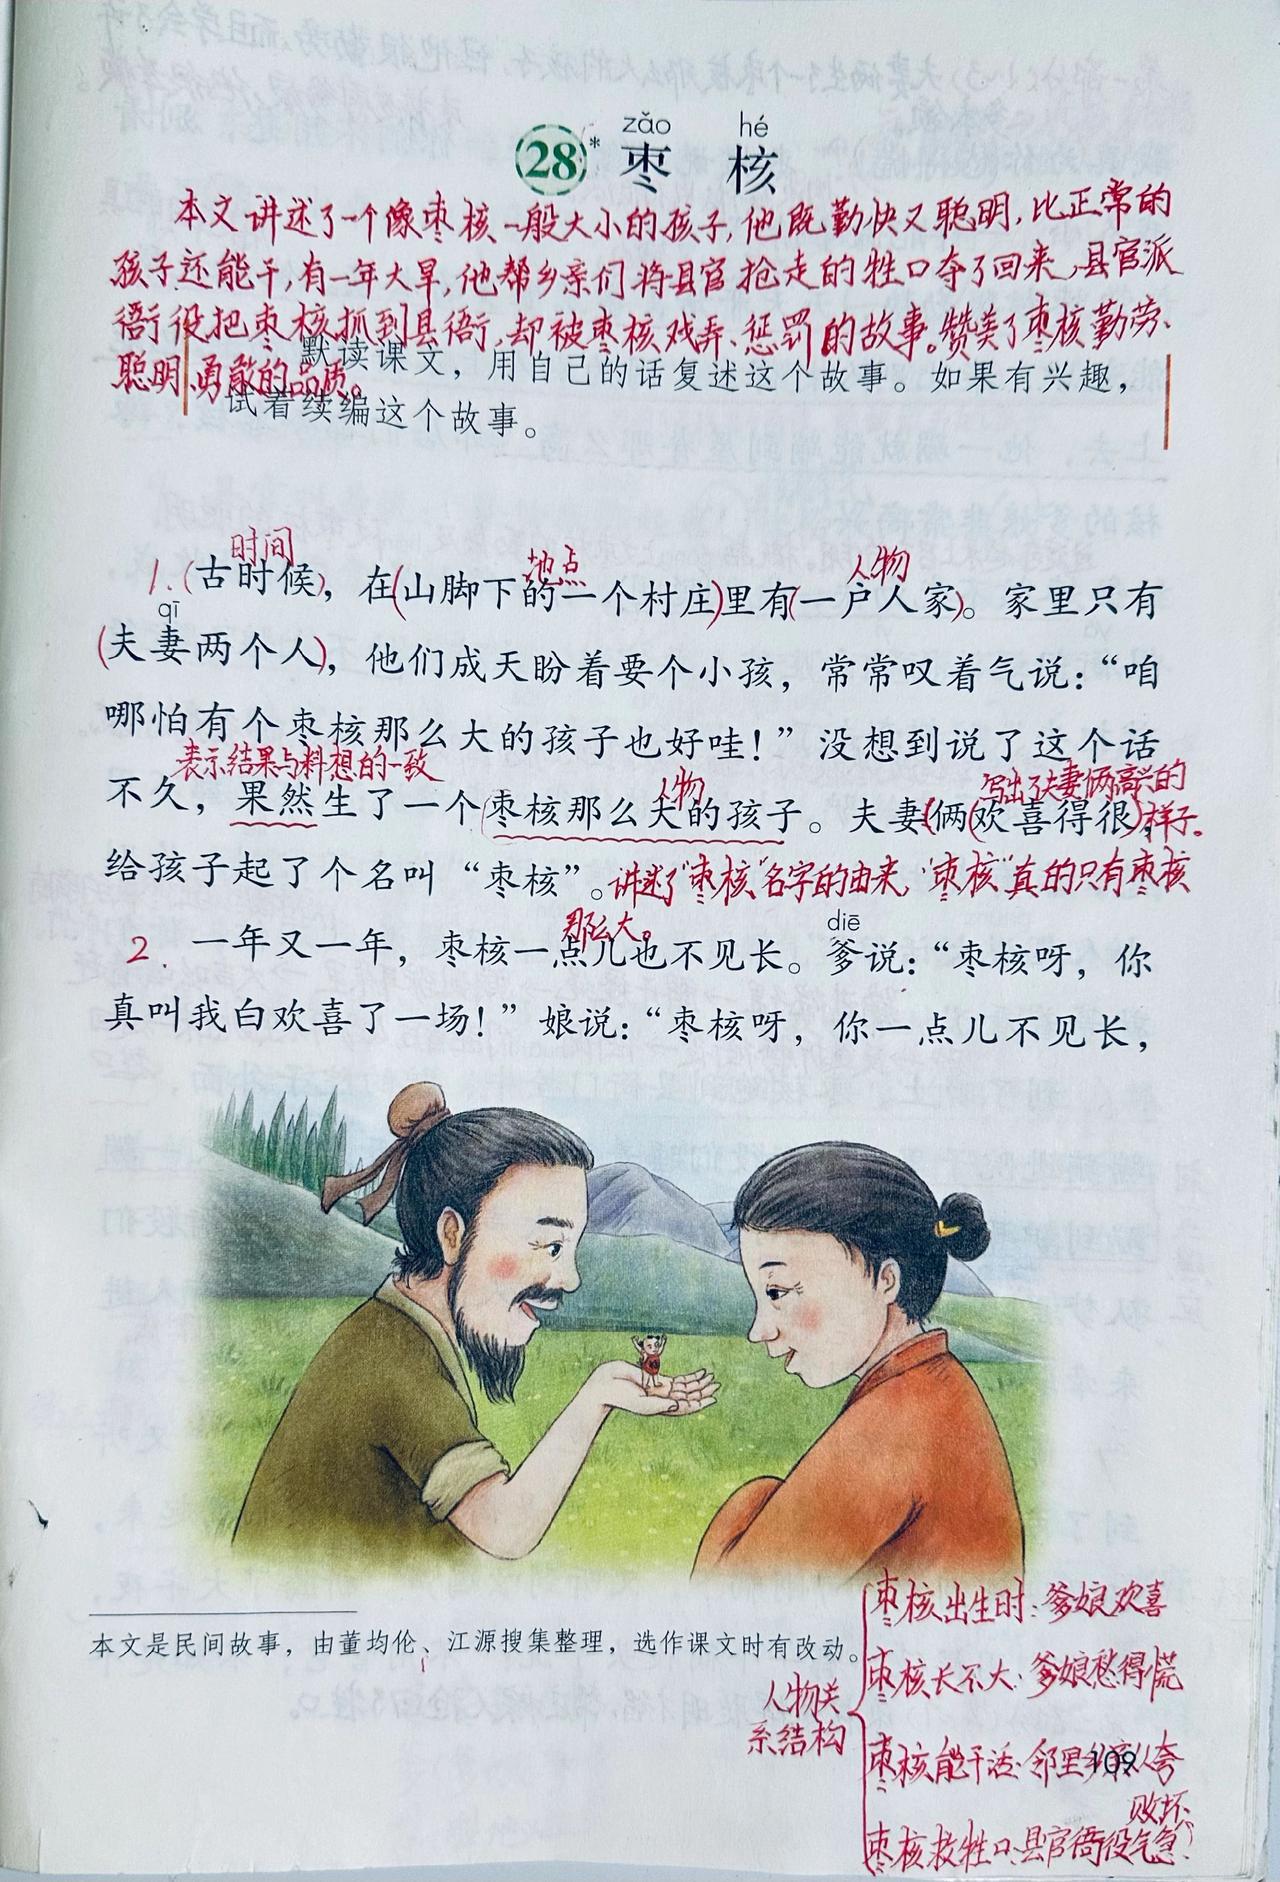 zǎo hé
28* 枣 核
本文讲述了一个像枣核一般大小的孩子,他既勤快又聪明,比正常的
孩子还能干,有一年大旱,他帮乡亲们将县官抢走的牲口夺了回来,县官派
衙役把枣核抓到县衙,却被枣核戏弄、惩罚的故事。赞美了枣核勤劳、
聪明、勇敢的品质。
默读课文，用自己的话复述这个故事。如果有兴趣，
试着续编这个故事。
时间 地点 人物
1.(古时候)，在(山脚下的一个村庄)里有(一户人家)。家里只有
qī
(夫妻两个人)，他们成天盼着要个小孩，常常叹着气说：“咱
哪怕有个枣核那么大的孩子也好哇！”没想到说了这个话
表示结果与料想的一致 人物 写出了夫妻俩高兴的
不久，果然生了一个枣核那么大的孩子。夫妻(俩(欢喜得很)，样子。
给孩子起了个名叫“枣核”。讲述了“枣核”名字的由来,“枣核”真的只有枣核
那么大。 diē
2. 一年又一年，枣核一点儿也不见长。爹说：“枣核呀，你
真叫我白欢喜了一场！”娘说：“枣核呀，你一点儿不见长，
枣核出生时:爹娘欢喜
本文是民间故事，由董均伦、江源搜集整理，选作课文时有改动。
枣核长不大:爹娘愁得慌
人物关
系结构
枣核能干活:邻里乡亲夸
109
败坏
枣核救牲口:县官衙役气急